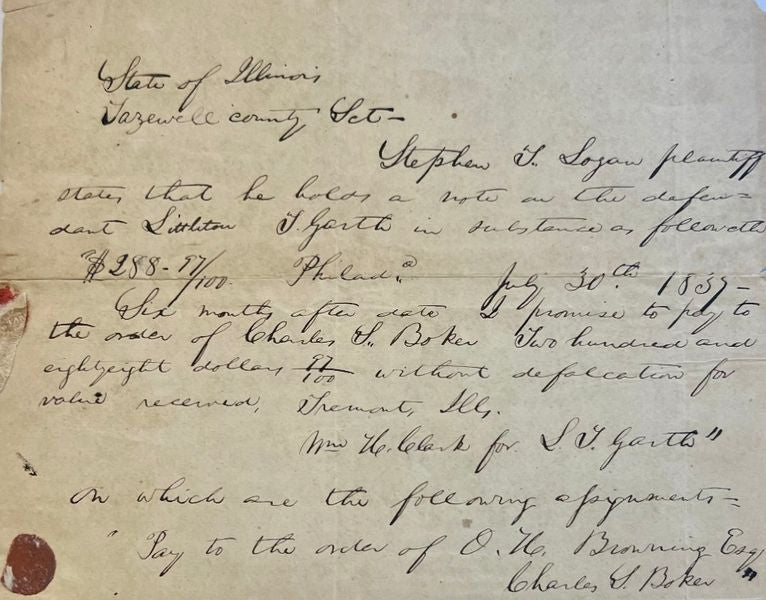 State of Illinois
Tazewell county Sct –
Stephen T. Logan plaintiff
states that he holds a note on the defen=
dant Littleton T. Garth in substance as followeth
"$288 - 97/100. Philad.ª July 30th. 1839 –
Six months after date I promise to pay to
the order of Charles S. Boker Two hundred and
eightyeight dollars 97/100 without defalcation for
value received, Tremont, Ills.
Wm H. Clark for L. T. Garth"
on which are the following assignments =
" Pay to the order of O. H. Browning Esq,
Charles S. Boker "